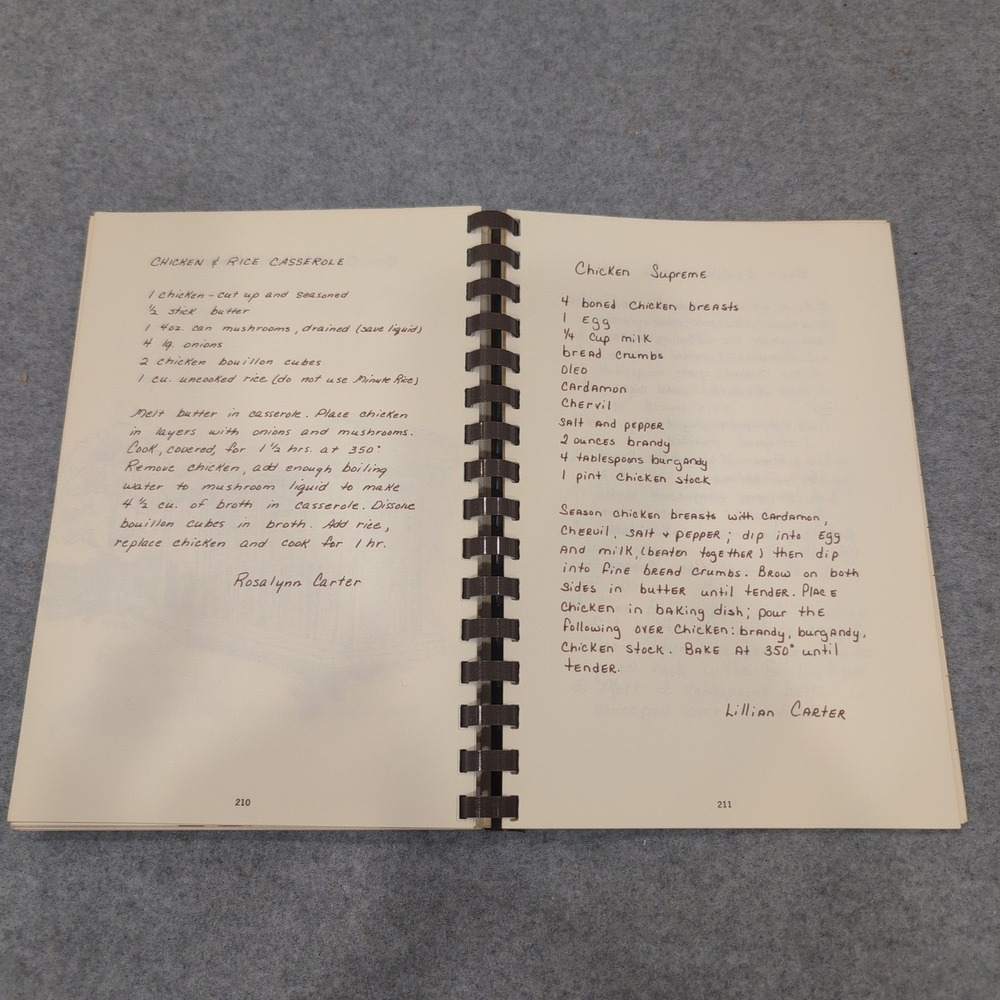 CHICKEN & RICE CASSEROLE
1 chicken - cut up and seasoned
½ stick butter
1 4oz. can mushrooms, drained (save liquid)
4 lg. onions
2 chicken bouillon cubes
1 cu. uncooked rice (do not use Minute Rice)
Melt butter in casserole. Place chicken
in layers with onions and mushrooms.
Cook, covered, for 1 ½ hrs. at 350°
Remove chicken, add enough boiling
water to mushroom liquid to make
4 ½ cu. of broth in casserole. Dissolve
bouillon cubes in broth. Add rice,
replace chicken and cook for 1 hr.
Rosalynn Carter
210
Chicken Supreme
4 boned chicken breasts
1 Egg
¼ cup milk
bread crumbs
Oleo
Cardamon
Chervil
Salt and pepper
2 ounces brandy
4 tablespoons burgandy
1 pint chicken stock
Season chicken breasts with cardamon,
Chervil, salt & pepper; dip into Egg
and milk, (beaten together) then dip
into fine bread crumbs. Brow on both
sides in butter until tender. Place
chicken in baking dish; pour the
following over chicken: brandy, burgandy,
chicken stock. Bake at 350° until
tender.
Lillian Carter
211